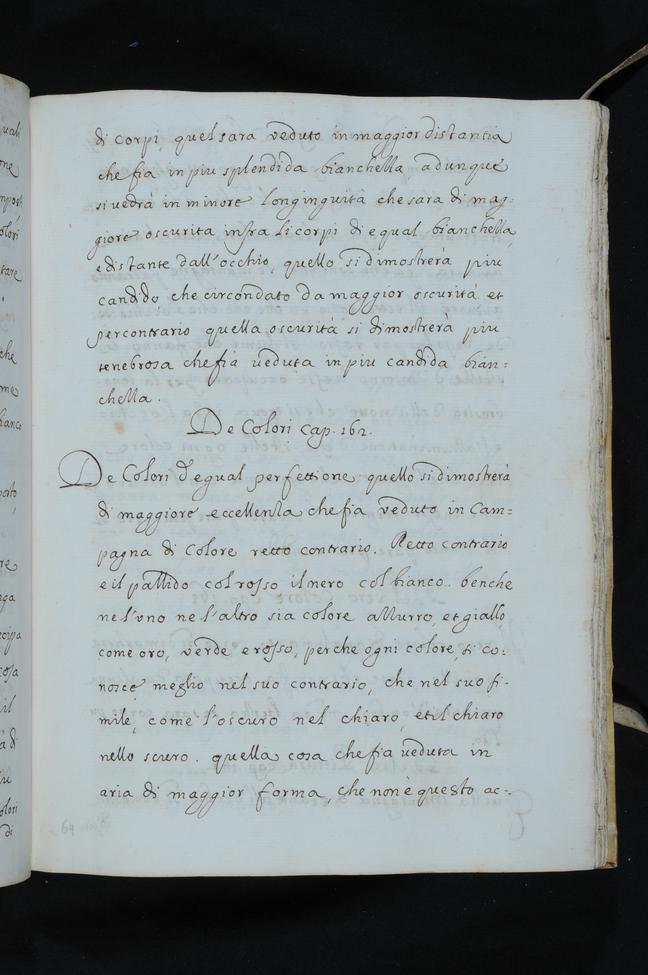 di corpi, quel sara veduto in maggior distantia
che fia in piu splendida bianchella, adunque
si vedrà in minore longinguità che sara di mag:
giore oscurita infra li corpi di equal bianchella,
e distante dall'occhio, quello si dimostrerà piu
candido, che circondato da maggior oscurità et
per contrario quella oscurità si dimostrerà piu
tenebrosa che fia veduta in piu candida bian:
chella.
De Colori Cap. 162.
De Colori d'egual perfettione quello si dimostrerà
di maggiore eccellenlla che fia veduto in Cam=
pagna di Colore retto contrario. Retto contrario
e il pallido col rosso il nero col bianco. benche
ne l'uno ne l'altro sia colore allurro, et giallo
come oro, verde e rosso, perche ogni colore, si co:
nosce meglio nel suo contrario, che nel suo si-
mile, come l'oscuro nel chiaro, et il chiaro
nello scuro. quella cosa che fia veduta in
aria di maggior forma, che non è questo ac-.
64